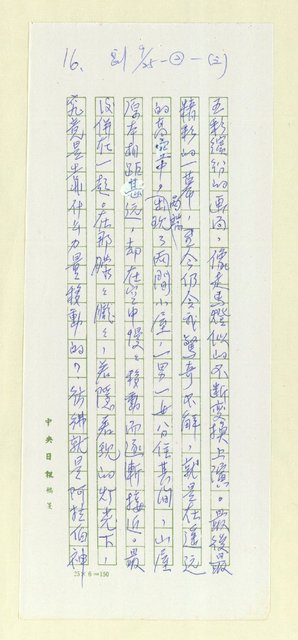 16、 副 9/25-②-(三)
五彩繽紛的畫面，像走馬燈似的不斷變換上演。最後最
精彩的一幕，至今仍令我驚奇不解，就是在遙遠
的高空中，兩端出現了兩間小屋，一男一女分住其間，小屋
原本相距甚远，却在空中慢慢移動而逐漸接近。最
後併在一起。在那朦朦朧朧，若隱若現的灯光下，
究竟是靠什么力量移動的？彷彿就是阿拉伯神
中央日報 稿箋
25×6=150